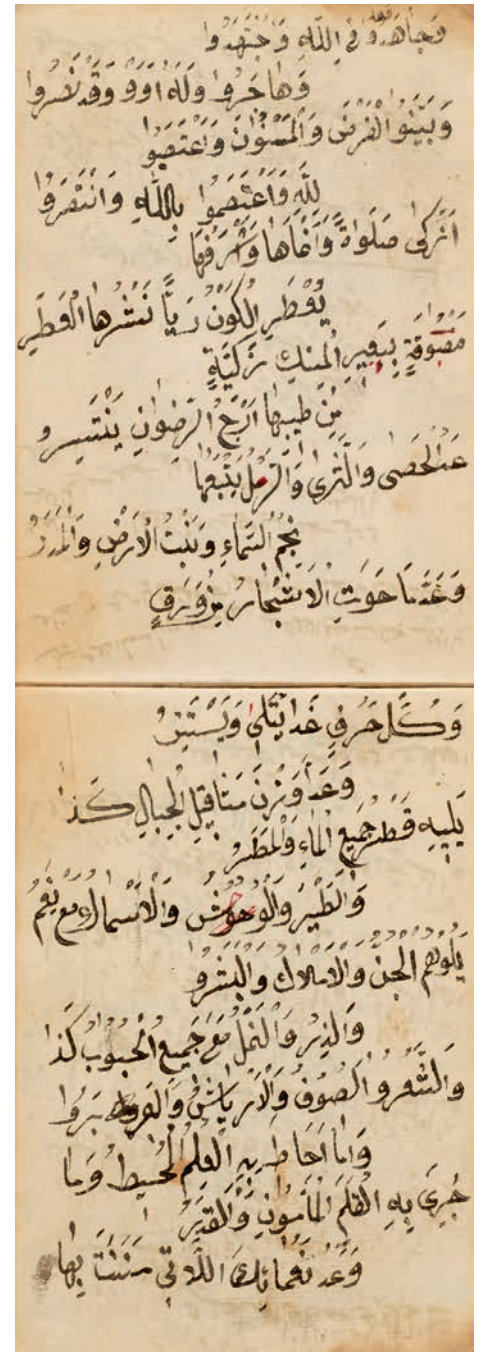 وَجَاهَدُوا مَعَهُ فِي اللَّهِ وَجْتَهَدُوا
وَهَاجَرُوا وَلَهُ اٰوَوْ وَقَدْ نَصَرُوا
وَبَيَّنُوا الْفَرْضَ وَالْمَسْنُوْنَ وَاعْتَصَبُو
لِلَّهِ وَاَعْتَصَمُوا بِاللَّهِ وَانْتَصَرُوا
اَزْكٰى صَلَوَاةً وَاَنْمَاهَا وَشْرَفُهَا
يُعْطِرِ الْكَوْنَ رَيًّا نَشْرُهَا الْعَطِرِ
مَعْبُوقَةٍ بِعَبِيرِ الْمِسْكِ زَكِيَّةٍ
مِنْ طِيبِهَا اَرَجُ الرِّضْوَانِ يَنْتَسِرُ
عَدَّ الْحَصٰى وَالثَّرٰى وَالرَّمْلُ يَتْبَعُهَا
نَجْمُ السَّمَاءِ وَنَبْتُ الْاَرْضِ وَالْمَدَرُ
وَعَدَّ مَا حَوَتِ الْاَشْجَارُ مِنْ وَرَقٍ
وَكُلِّ حَرْفٍ غَدَا يُتْلٰى وَيَسْتَتِرُ
وَعَدَّ وَزْنَ مَثَاقِيلِ الْجِبَالِ كَذَا
يَلِيهِ قَطْرُ جَمِيعِ الْمَاءِ وَالْمَطَرُ
وَالطَّيْرُ وَالْوُحُوشُ وَالْاَسْمَاكُ مَعْ نِعَمٍ
يَتْلُوهُمُ الْجِنُّ وَالْاَمْلَاكُ وَالْبَشَرُو
وَالذَّرُّ وَالنَّمْلُ مَعْ جَمِيعُ الْحُبُوْبُ كَذَا
وَالشَّعْرُو الصُّوْفُ وَالْاَرْيَاشُ وَالْوَبَرُوا
وَمَا اَحَاطَ بِهِ الْعِلْمُ الْمُحِيطُ وَمَا
جَرٰى بِهِ الْقَلَمُ الْمَأْمُوْنِ وَالْقَدَرُ
وَعَدَّ نَعْمَائِكَ اللَّاتِي مَنَنْتَ بِهَا